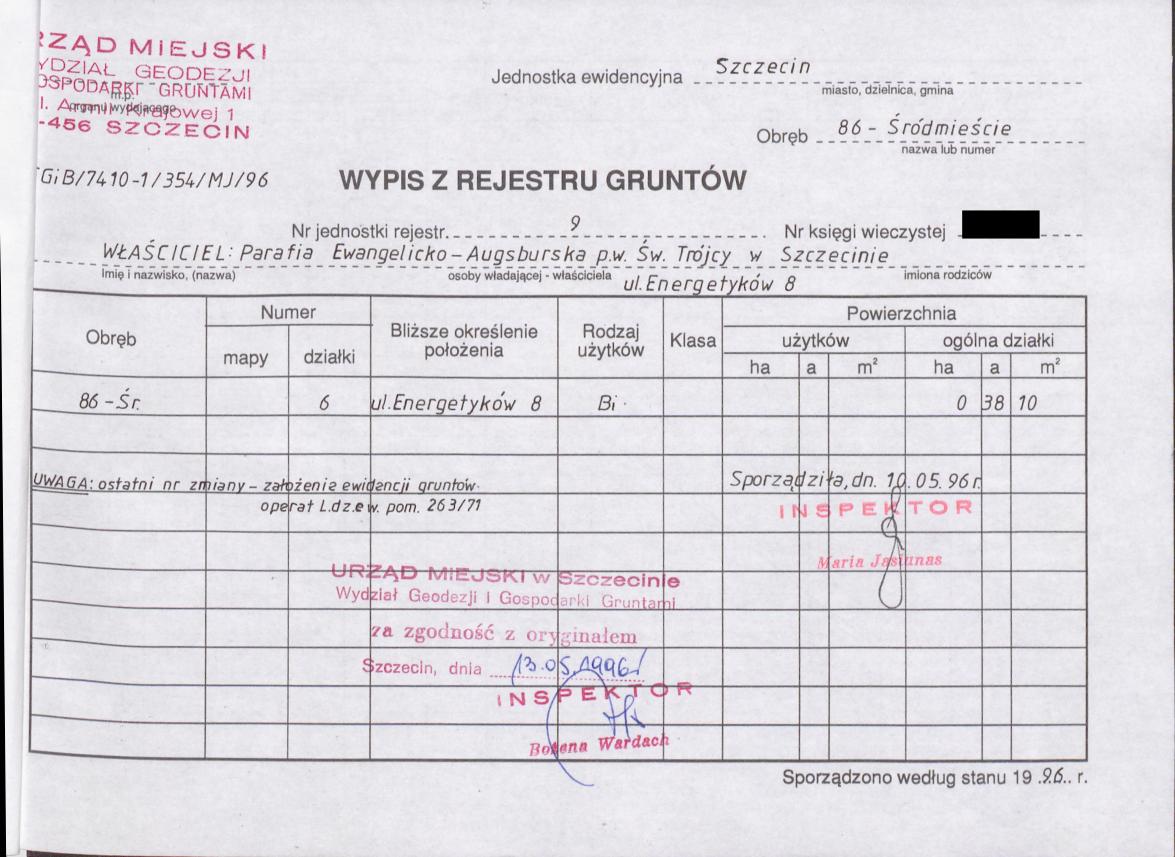 RZĄD MIEJSKI
YDZIAŁ GEODEZJI
OSPODARKI GRUNTAMI
m.p.
l. Armii Krajowej 1
organu wydającego
-456 SZCZECIN
Jednostka ewidencyjna Szczecin
miasto, dzielnica, gmina
Obręb 86 - Śródmieście
nazwa lub numer
GiB/7410-1/354/MJ/96
WYPIS Z REJESTRU GRUNTÓW
Nr jednostki rejestr. 9 Nr księgi wieczystej
WŁAŚCICIEL: Parafia Ewangelicko-Augsburska p.w. Św. Trójcy w Szczecinie
imię i nazwisko, (nazwa) osoby władającej - właściciela imiona rodziców
ul. Energetyków 8
Obręb Numer Bliższe określenie położenia Rodzaj użytków Klasa Powierzchnia
mapy działki użytków ogólna działki
ha a m² ha a m²
86 - Śr. 6 ul. Energetyków 8 Bi. 0 38 10
UWAGA: ostatni nr zmiany - założenie ewidencji gruntów.
operat L.dz.ew. pom. 263/71
Sporządziła, dn. 10.05.96r.
INSPEKTOR
Maria Jasiunas
URZĄD MIEJSKI w Szczecinie
Wydział Geodezji i Gospodarki Gruntami
za zgodność z oryginałem
Szczecin, dnia 13.05.1996
INSPEKTOR
Bożena Wardach
Sporządzono według stanu 19 96.. r.